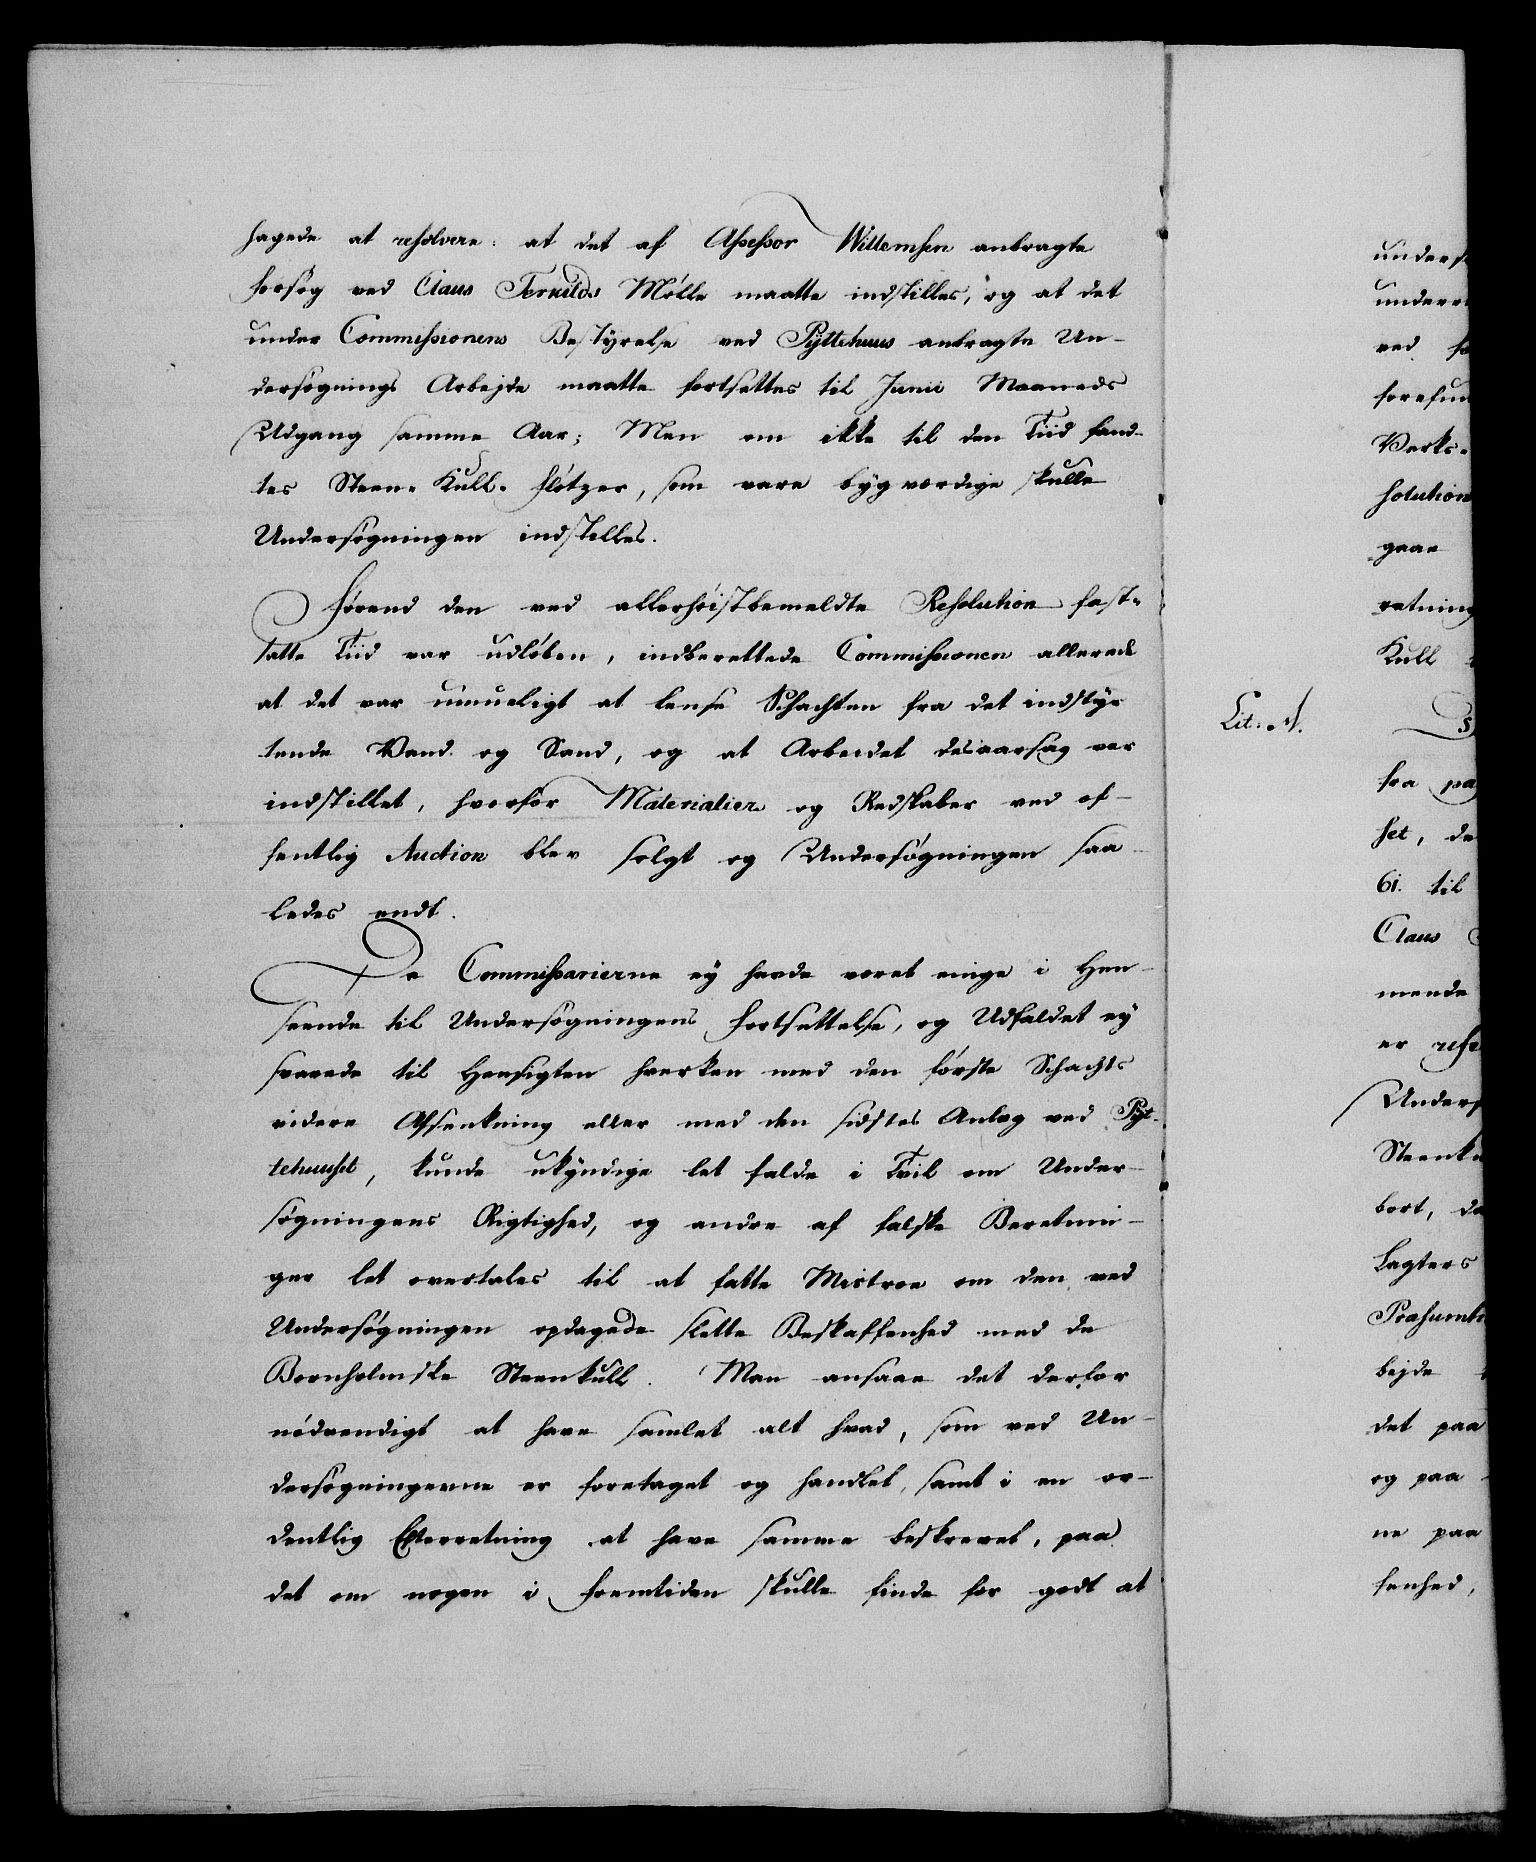 hagede at resolvere: at det af Assessor Willemsen anbragte
Forsøg ved Claus Terkilds Mølle maatte indstilles, og at det
under Commissionens Bestyrelse ved Pyttehuus anbragte Un-
dersøgnings Arbejde maatte fortsættes til Junii Maaneds
Udgang samme Aar; Men om ikke til den Tiid fand-
tes Steen-Kull-Fløtzer, som vare bygværdige skulle
Undersøgningen indstilles.
Førend den ved allerhøistbemeldte Resolution fast-
satte Tiid var udløben, indberettede Commissionen allerede
at det var umueligt at lense Schachten fra det indstyr
tende Vand og Sand, og at Arbeidet desaarsag var
indstillet, hvorfor Materialier og Redskaber ved of-
fentlig Auction blev solgt og Undersøgningen saa-
ledes endt.
Da Commissarierne ey havde været einige i Hen-
seende til Undersøgningens Fortsættelse, og Udfaldet ey
svarede til Hensigten hverken med den første Schachts
videre Afsenkning eller med den sidstes Anlæg ved Pyt-
tehuuset, kunde ukyndige let falde i Tvil om Under-
søgningens Rigtighed, og andre af falske Beretnin-
ger let overtales til at fatte Mistroe om den ved
Undersøgningen opdagede slette Beskaffenhed med de
Bornholmske Steenkull. Man ansaae det derfor
nødvendigt at have samlet alt hvad, som ved Un-
dersøgningerne er foretaget og handlet, samt i en or-
dentlig Efterretning at have samme beskrevet, paa
det om nogen i Fremtiden skulle finde for godt at
Lit: A.
ved
Verks-
solution
gaae
retning
Kull
fra
set, de
61. til
Claus
mende
er
bort, da
Lagters
bejde
det paa
og paa
ne paa
fenhed,